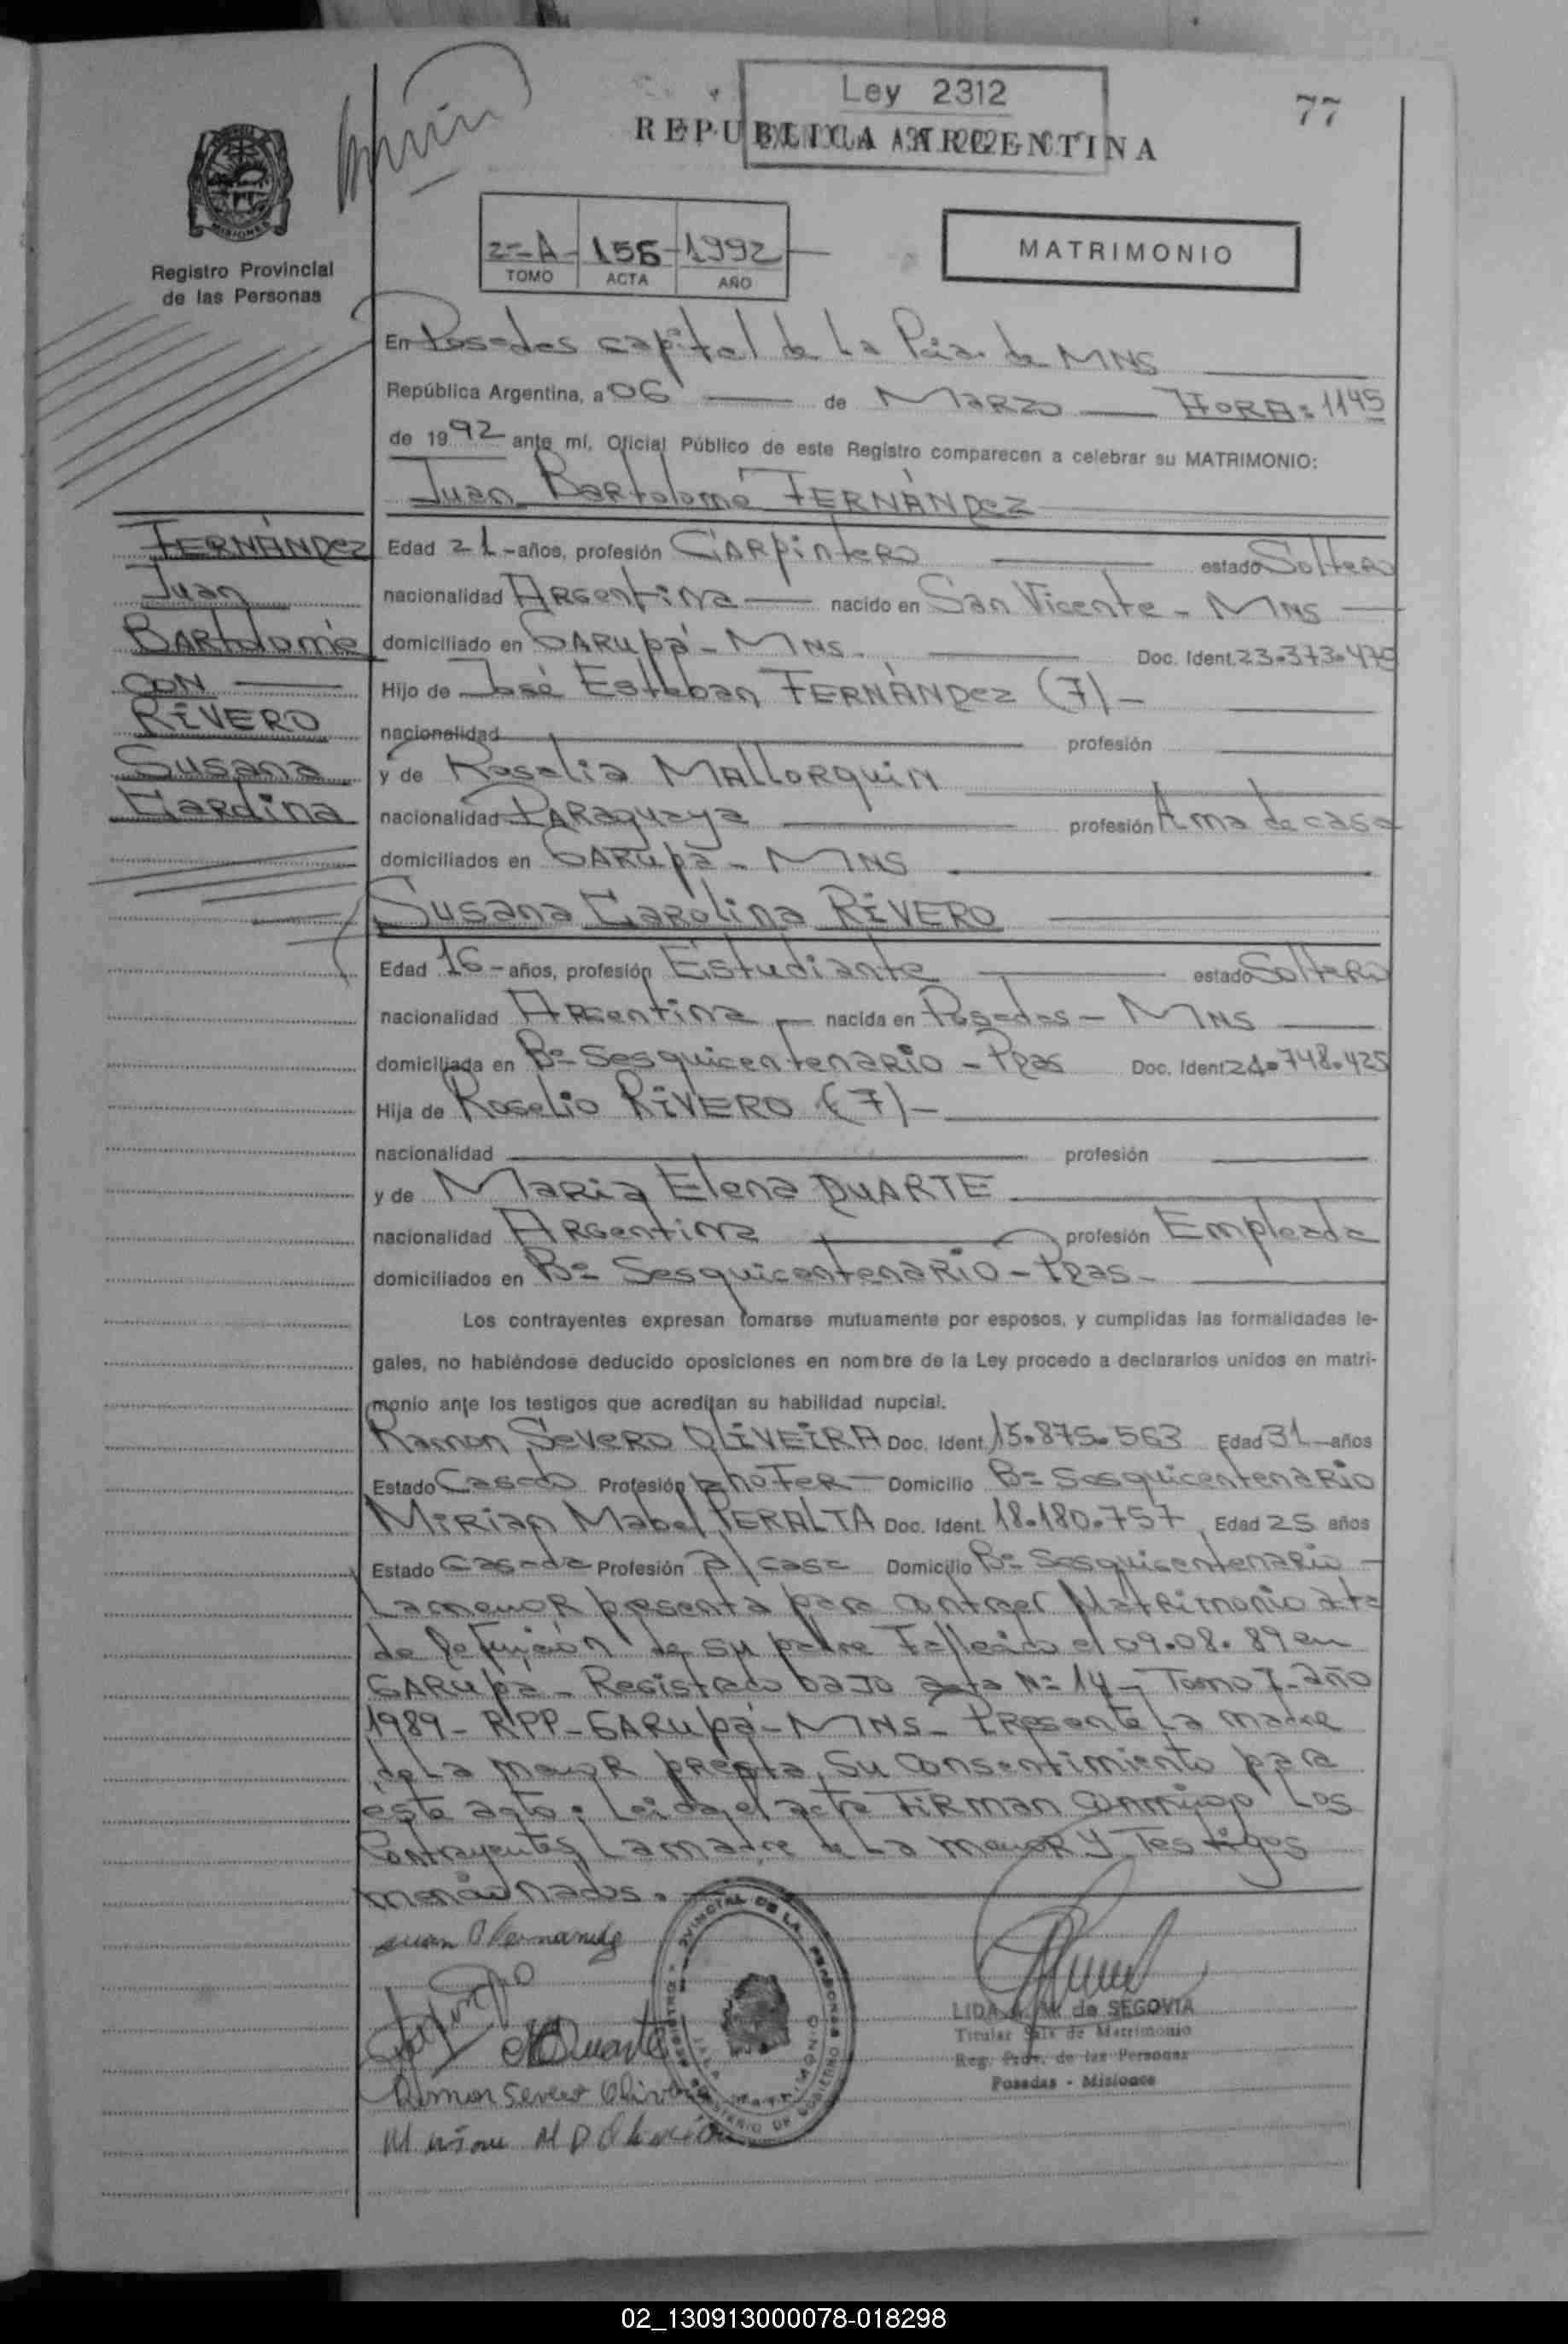 Ley 2312
77
REPUBLICA ARGENTINA
MISIONES
Registro Provincial
de las Personas
2=A - 156 - 1992
TOMO ACTA AÑO
MATRIMONIO
En Posadas capital de La Pcia. de MNS
República Argentina, a 06 de MARZO HORA: 1145
de 1992 ante mí, Oficial Público de este Registro comparecen a celebrar su MATRIMONIO:
Juan Bartolomé FERNÁNDez
FERNÁNDez
Juan
BARtolomé
CON
RIVERO
Susana
Carolina
Edad 21 - años, profesión CARpinteRO estado SolteRO
nacionalidad ARGentina nacido en San Vicente - MNS
domiciliado en GARUpá - MNS. Doc. Ident. 23.373.475
Hijo de José Esteban FERNÁNDez (7) -
nacionalidad profesión
y de Rosalia MALLORquiN
nacionalidad PARaguaya profesión Ama de casa
domiciliados en GARupá - MNS
Susana CaROlina RIVERO
Edad 16 - años, profesión Estudiante estado SolteRO
nacionalidad ARGentina nacida en Posadas - MNS
domiciliada en Bº Sesquicentenario - Pdas Doc. Ident 24.748.425
Hija de Rogelio RIVERO (7) -
nacionalidad profesión
y de MaRia Elena DUARTE
nacionalidad ARGentina profesión Empleada
domiciliados en Bº Sesquicentenario - Pdas -
Los contrayentes expresan tomarse mutuamente por esposos, y cumplidas las formalidades le-
gales, no habiéndose deducido oposiciones en nombre de la Ley procedo a declararlos unidos en matri-
monio ante los testigos que acreditan su habilidad nupcial.
Ramon Severo OLIVEIRA Doc. Ident. 15.875.563 Edad 31 - años
Estado Casado Profesión choFeR - Domicilio Bº Sesquicentenario
MiRian Mabel PERALTA Doc. Ident. 18.180.757 Edad 25 años
Estado Casada Profesión a/casa Domicilio Bº Sesquicentenario -
La menoR presenta para contraer MatRimonio acta
de Defunción de su padre Fallecido el 09.08.89 en
GARupá - Registrado bajo acta Nº 14 - Tomo I - año
1989 - RPP - GARupá - MNS - PResente La madre
de La menoR presta su consentimiento para
este acto. Leida el acta FiRman conmigo Los
Contrayentes, La madre de La menoR y Testigos
mencionados.
Juan B Fernandez
MEDuarte
Ramon Severo Oliveira
LIDA de SEGOVIA
Titular Sala de Matrimonio
Reg. Prov. de las Personas
Posadas - Misiones
02_130913000078-018298